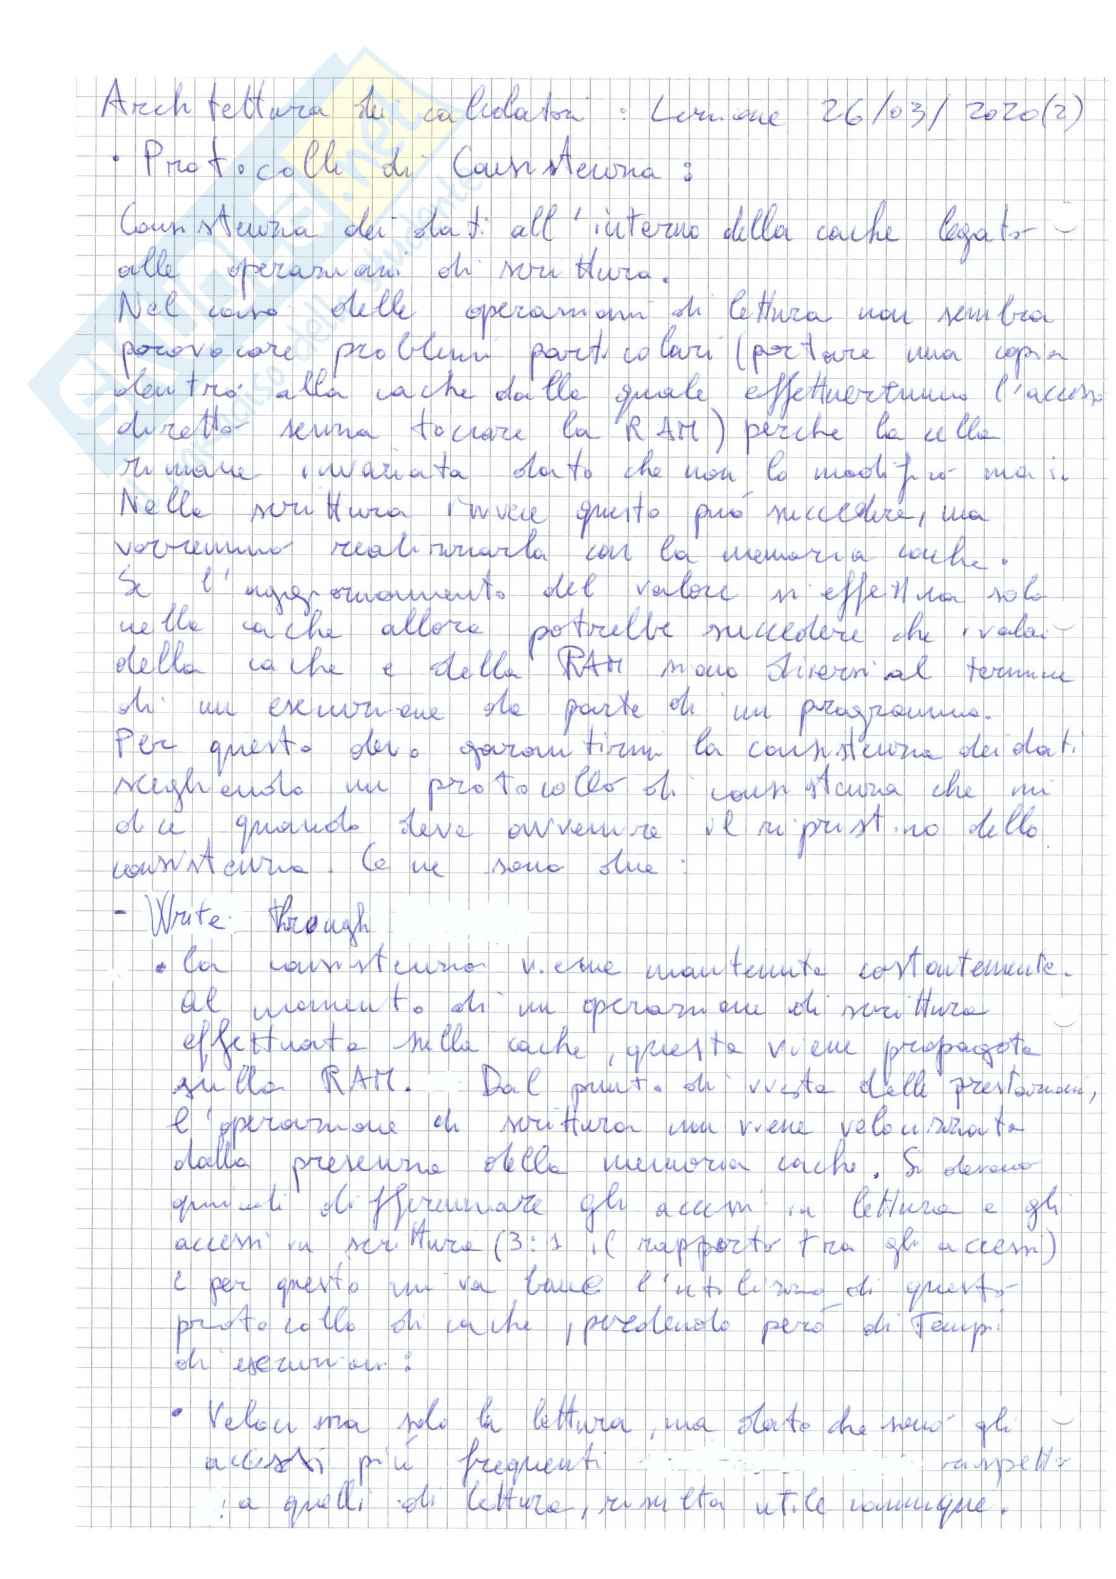 Architettura dei calcolatori : Lezione 26/03/2020(2)
• Protocolli di Consistenza :
Consistenza dei dati all'interno della cache legato
alle operazioni di scrittura.
Nel caso delle operazioni di lettura non sembra
porovocare problemi particolari (portare una copia
dentro alla cache dalla quale effettueranno l'accesso
diretto senza toccare la RAM) perche la cella
rimane invariata dato che non lo modifico mai.
Nelle scrittura invece questo può succedere, ma
vorremmo realizzarla con la memoria cache.
Se l'aggiornamento del valore si effettua solo
nella cache allora potrebbe succedere che i valori
della cache e della RAM siano diversi al termine
di un esecuzione da parte di un programma.
Per questo devo garantirmi la consistenza dei dati
scegliendo un protocollo di consistenza che mi
dice quando deve avvenire il ripristino della
consistenza. Ce ne sono due :
- Write through
• La consistenza viene mantenuta costantemente.
Al momento di un operazione di scrittura
effettuata nella cache, questa viene propagata
sulla RAM. Dal punto di vista delle prestazioni,
l'operazione di scrittura non viene velocizzata
dalla presenza della memoria cache. Si devono
quindi differenziare gli accessi in lettura e gli
accessi in scrittura (3:1 il rapporto tra gli accessi)
e per questo mi va bene l'utilizzo di questo
protocollo di cache, perdendo però di tempi
di esecuzioni :
• Velocizza solo la lettura, ma dato che sono gli
accessi più frequenti rispetto
a quelli di lettura, risulta utile comunque.